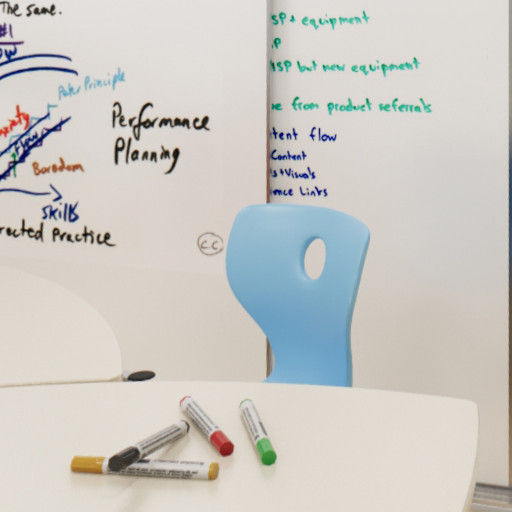 The same.
#1
Peter Principle
Flow
Boredom
Skills
Practice
Performance
Planning
C.C
SP + equipment
SP but new equipment
from product referrals
flow
Content
Visuals
Links